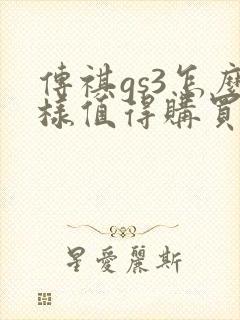 傳祺gs3怎麼
樣值得購買
星愛麗斯